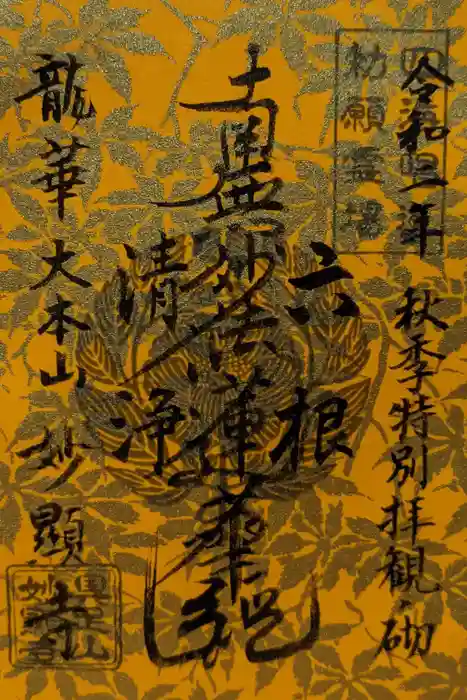 四海唱導
勅願霊場
令和二年
秋季特別拝観砌
六根
南無妙法蓮華経
清浄
龍華
大本山妙顯寺